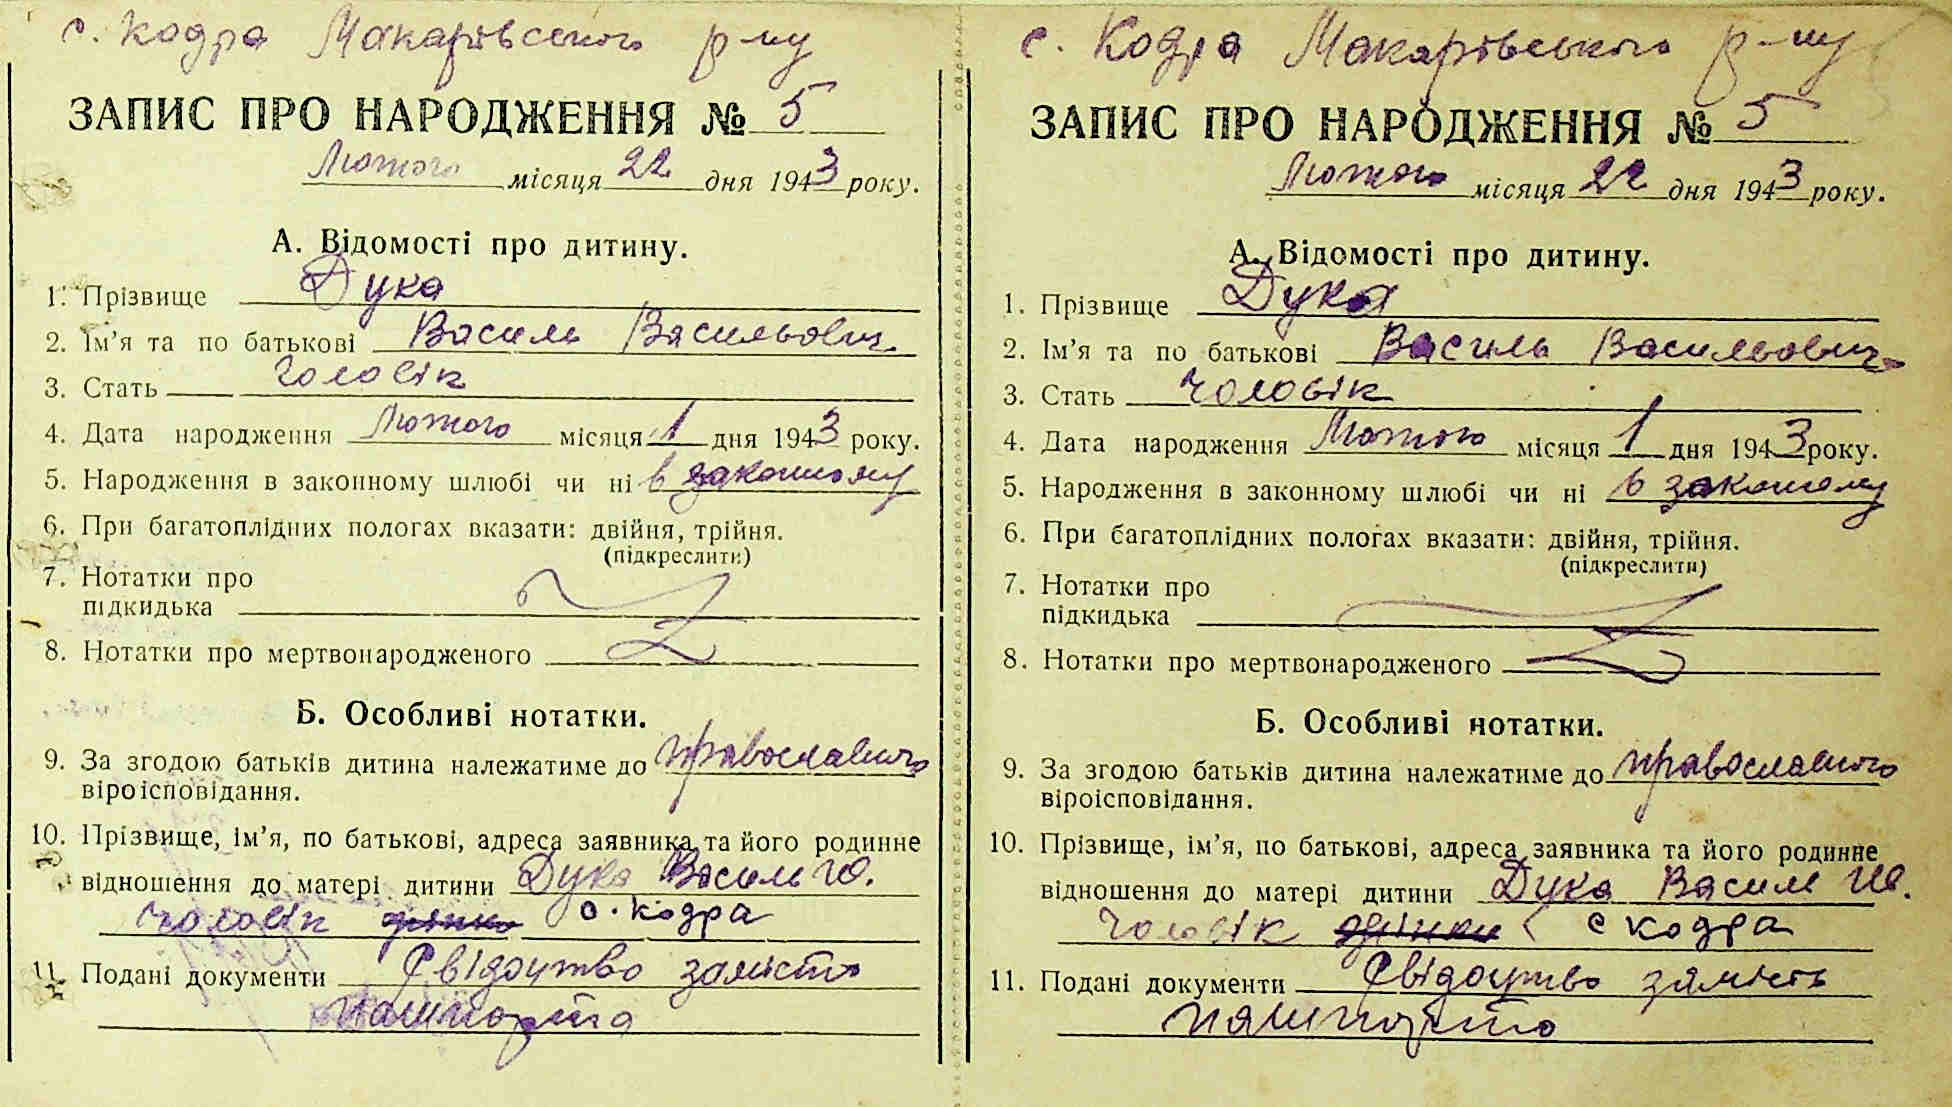 с. Кодра Макарівського р-ну
ЗАПИС ПРО НАРОДЖЕННЯ № 5
Лютого місяця 22 дня 1943 року.
А. Відомості про дитину.
1. Прізвище Дука
2. Ім'я та по батькові Василь Васильович
3. Стать Чоловік
4. Дата народження Лютого місяця 1 дня 1943 року.
5. Народження в законному шлюбі чи ні в законному
6. При багатоплідних пологах вказати: двійня, трійня.
(підкреслити)
7. Нотатки про
підкидька
8. Нотатки про мертвонародженого
Б. Особливі нотатки.
9. За згодою батьків дитина належатиме до православного
віроісповідання.
10. Прізвище, ім'я, по батькові, адреса заявника та його родинне
відношення до матері дитини Дука Василь Ю.
чоловік с. Кодра
11. Подані документи Свідоцтво замість
пашпорта
с. Кодра Макарівського р-ну
ЗАПИС ПРО НАРОДЖЕННЯ № 5
Лютого місяця 22 дня 1943 року.
А. Відомості про дитину.
1. Прізвище Дука
2. Ім'я та по батькові Василь Васильович
3. Стать Чоловік
4. Дата народження Лютого місяця 1 дня 1943 року.
5. Народження в законному шлюбі чи ні в законому
6. При багатоплідних пологах вказати: двійня, трійня.
(підкреслити)
7. Нотатки про
підкидька
8. Нотатки про мертвонародженого
Б. Особливі нотатки.
9. За згодою батьків дитина належатиме до православного
віроісповідання.
10. Прізвище, ім'я, по батькові, адреса заявника та його родинне
відношення до матері дитини Дука Васил Ю.
чоловік с Кодра
11. Подані документи Свідоцтво замість
пашпорта